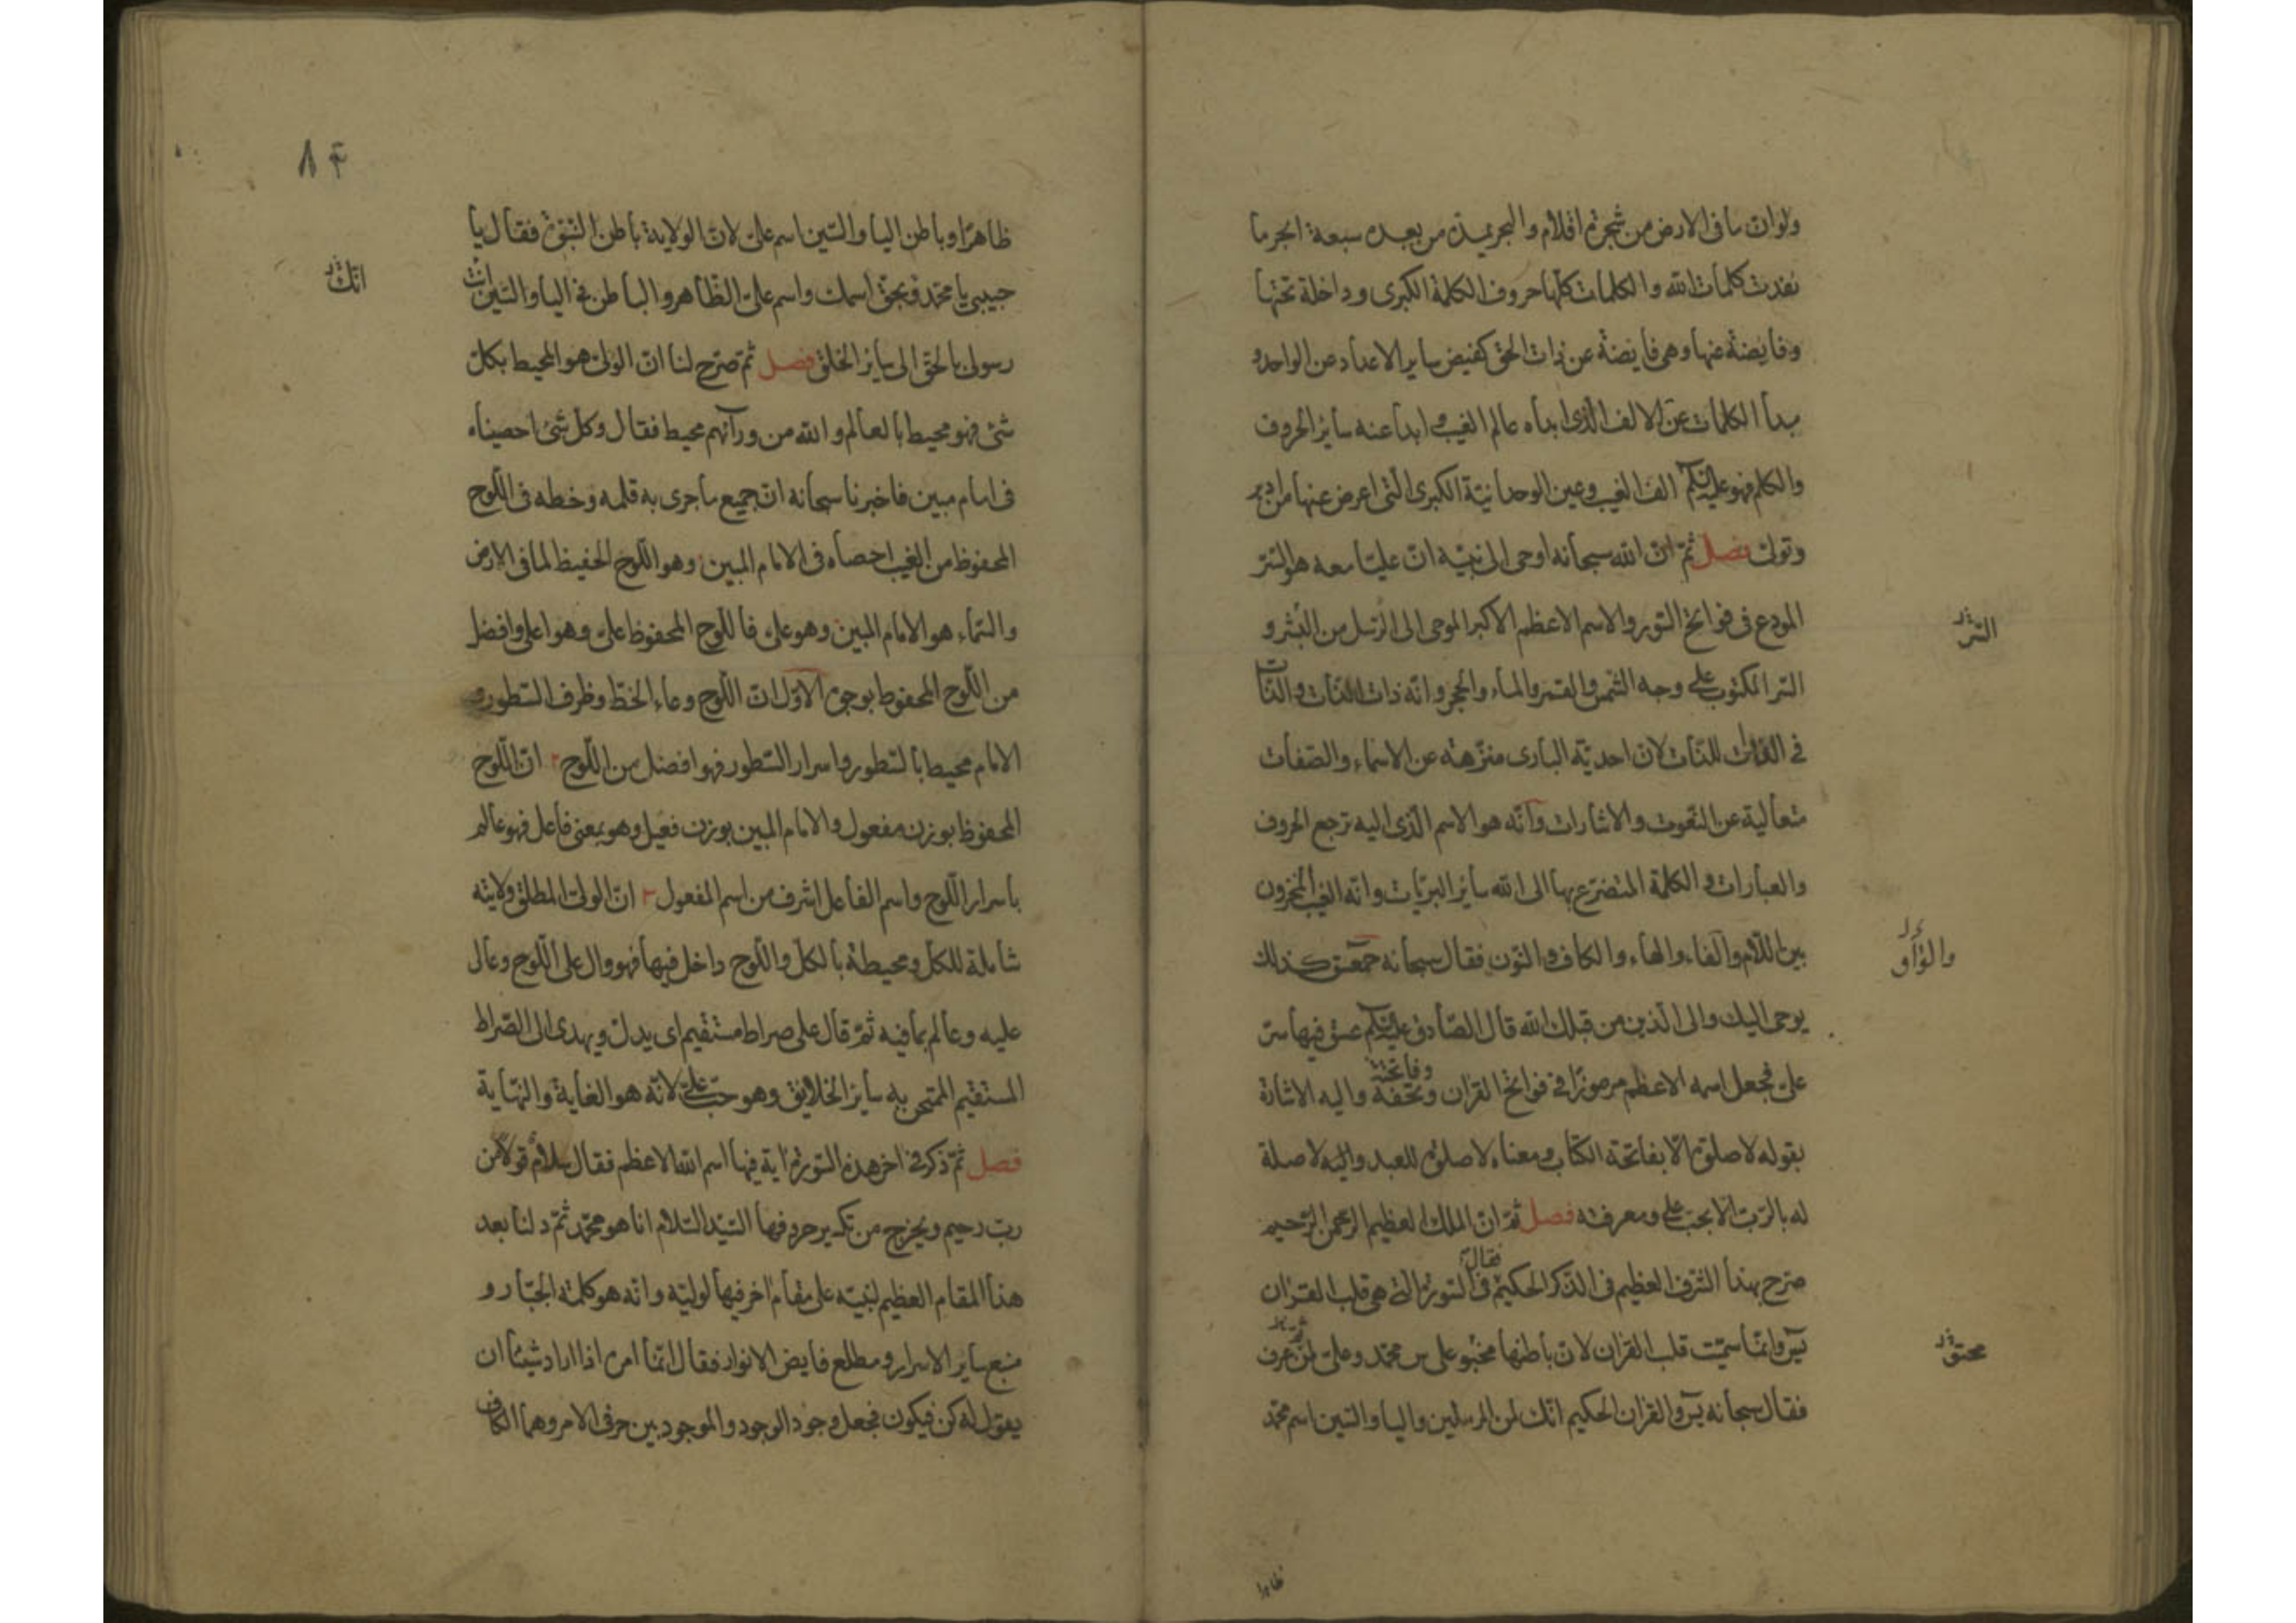 ولوان ما فى الارض من شجرة اقلام والبحر يمده من بعده سبعة ابحر ما
نفدت كلمات الله والكلمات كلها حروف الكلمة الكبرى وداخلة تحتها
وفايضة عنها وهى فايضة عن ذات الحق كفيض ساير الاعداد عن الواحد و
مبدأ الكلمات عن الالف الذى ابداه عالم الغيب و ابدا عنه سائر الحروف
والكلم فهو عليكم الف الغيب وعين الوحدانية الكبرى التى اعرض عنها من ادبر
وتولى فصل ثم ان الله سبحانه اوحى الى نبيه ان عليا معه هو السر
المودع فى فواتح السور والاسم الاعظم الاكبر الموحى الى الرسل من البشر و
السر
السر المكتوب على وجه الشمس والقمر والماء والحجر وانه ذات الذات والذات
فى الذوات للذات لان احدية البارى منزهة عن الاسماء والصفات
متعالية عن النعوت والاشارات وانه هو الاسم الذى اليه ترجع الحروف
والعبارات و الكلمة المتضرع بها الى الله سائر البريات وانه الغيب المخزون
بين اللام والفاء والهاء والكاف والنون فقال سبحانه حمعسق كذلك
والواو
يوحى اليك والى الذين من قبلك الله قال الصادق عليكم عسق فيها سر
على فجعل اسمه الاعظم مرموزا فى فواتح القران وتحفه واليه الاشارة
وفاتحته
بقوله لا صلوة الا بفاتحة الكتاب ومعناه لا صلوة للعبد ولا صلة
له بالرب الا بحب على ومعرفته فصل ثم ان الملك العظيم الرحمن الرحيم
صرح بهذا الشرف العظيم فى الذكر الحكيم فى السورة التى هى قلب القران
فقال
يس وانما سميت قلب القران لان باطنها محتو على سر محمد وعلى لمن عرف
محتو
فقال سبحانه يس والقران الحكيم انك لمن المرسلين واليا والسين اسم محمد
ظاهرا
۸۴
ظاهرا وباطن اليا والسين اسم على لان الولاية باطن النبوة فقال يا
حبيبى يا محمد فبحق اسمك واسم على الظاهر والباطن فى اليا والسين ان
انك
رسولى بالحق الى ساير الخلق فصل ثم صرح لنا ان الولى هو المحيط بكل
شئ فهو محيط بالعالم والله من ورآئهم محيط فقال وكل شئ احصيناه
فى امام مبين فاخبرنا سبحانه ان جميع ما جرى به قلمه وخطه فى اللوح
المحفوظ من الغيب احصاه فى الامام المبين وهو اللوح الحفيظ لما فى الارض
والسماء هو الامام المبين وهو على فاللوح المحفوظ على وهو اعلى وافضل
من اللوح المحفوظ بوجوه الاول ان اللوح وعاء الخط وظرف السطور و
الامام محيط بالسطور واسرار السطور فهو افضل من اللوح ۲ ان اللوح
المحفوظ بوزن مفعول والامام المبين بوزن فعيل وهو بمعنى فاعل فهو عالم
باسرار اللوح واسم الفاعل اشرف من اسم المفعول ۳ ان الولى المطلق ولايته
شاملة للكل ومحيطة بالكل واللوح داخل فيها فهو وال على اللوح وعال
عليه وعالم بما فيه ثم قال على صراط مستقيم اى يدل ويهدى الى الصراط
المستقيم الممتحن به سائر الخلايق وهو حب على لانه هو الغاية والنهاية
فصل ثم ذكر فى اخر هذه السورة اية فيها اسم الله الاعظم فقال سلام قولا من
رب رحيم ويخرج من تكسير حروفها السيد السلام انا هو محمد ثم دلنا بعد
هذا المقام العظيم لنبيه على مقام اخر فيها لوليه وانه هو كلمة الجبار و
منبع ساير الاسرار ومطلع فايض الانوار فقال انما امره اذا اراد شيئا ان
يقول له كن فيكون فجعل وجود الوجود والموجود بين حرفى الامر وهما الكاف